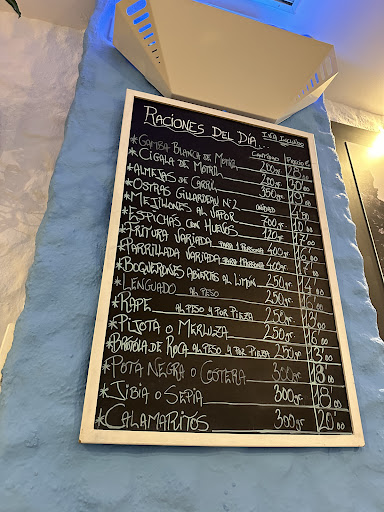 Raciones Del Día... IVA Incluido
Cantidad Precio €
*Gamba Blanca de Motril 200gr
*Cigala de Motril 200gr 30'00
*Almejas de Carril 350gr
*Ostras Gillardeau Nº2 unidad
*Mejillones al Vapor 700gr 10'00
*Espichas con Huevos 120gr
*Fritura Variada para 1 persona 400gr
*Parrillada Variada para 1 persona 400gr
*Boquerones Abiertos al Limón 250gr
*Lenguado al peso 250gr
*Rape al peso y por pieza 250gr
*Pijota o Merluza 250gr
*Brótola de Roca al peso y por pieza 250gr 13'00
*Pota Negra o Costera 300gr 18'00
*Jibia o Sepia 300gr 18'00
*Calamaritos 300gr 20'00